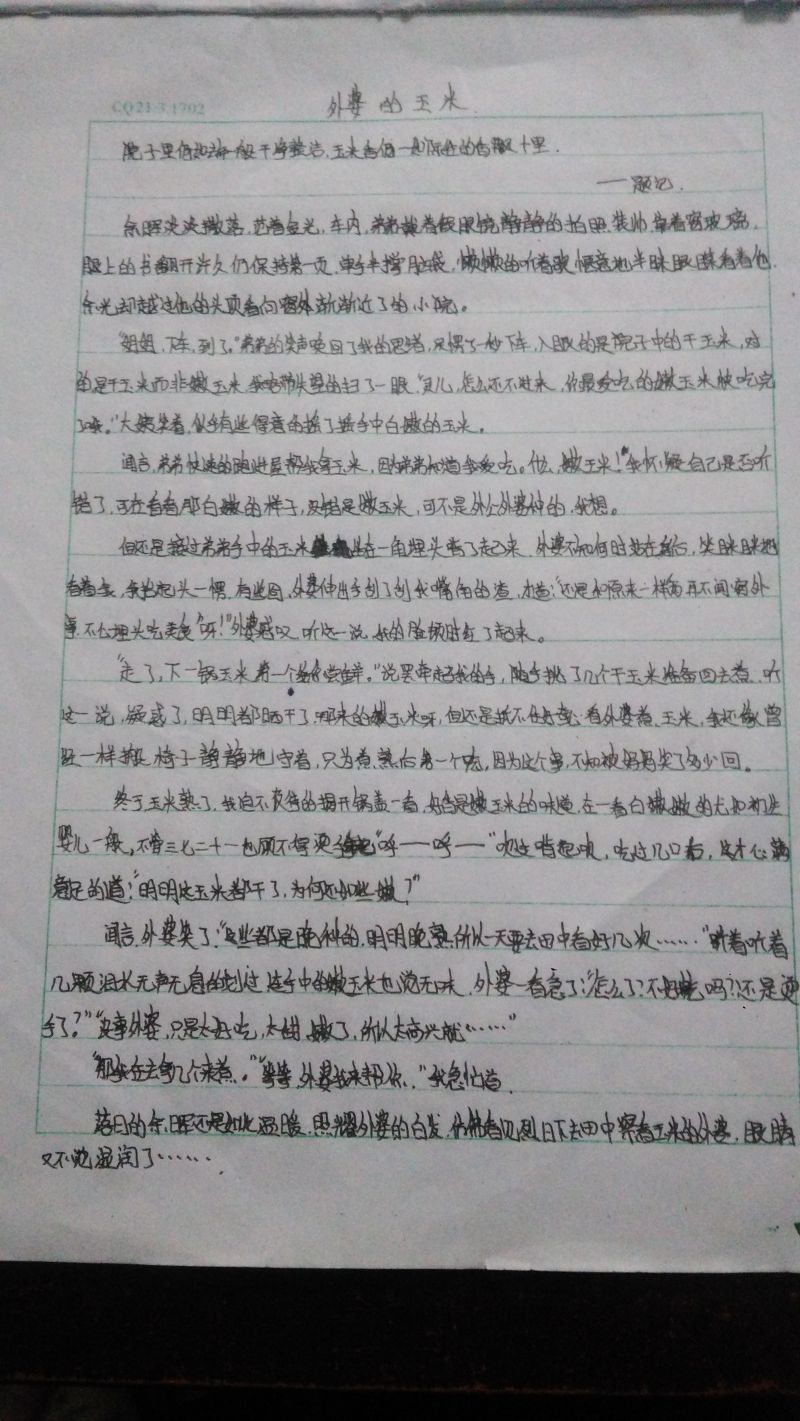 CQ21.3.1702
外婆的玉米
院子里仍如往般干净整洁,玉米香仍一如既往的香飘十里.
——题记.
余晖淡淡撒落,泛着金光,车内,弟弟戴着银眼镜静静的拍照,装帅,靠着窗玻璃,
腿上的书翻开许久仍保持第一页,单手半撑脑袋,懒懒的听着歌,惬意地半眯眼眯看着他,
余光却越过他的头顶看向窗外渐渐近了的小院。
"姐姐,下车,到了。"弟弟的笑声唤回了我的思绪,只愣了一秒下车,入眼的是院子中的干玉米,对
的是干玉米而非嫩玉米,我略带失望的扫了一眼."灵儿,怎么还不进来,你最爱吃的嫩玉米被吃完
了哦。"大姨笑着,似乎有些得意的摇了摇手中白嫩的玉米。
闻言,弟弟快速的跑进屋帮我拿玉米,因为弟弟知道我爱吃。什么,嫩玉米!我怀疑自己是否听
错了,可在看看那白嫩的样子,灵恰是嫩玉米,可不是外公外婆种的,我想。
但还是接过弟弟手中的玉米坐在一角埋头啃了起来.外婆不知何时站在身后,笑眯眯地
看着我,我抬起头一愣,有些囧,外婆伸出手刮了刮我嘴角的渣,打趣:"还是和原来一样两耳不闻窗外
事,不公埋头吃美食呀!"外婆感叹,听这一说,我的脸顿时红了起来。
"走了,下一锅玉米第一个给你尝鲜。"说罢牵起我的手,随手挑了几个干玉米准备回去煮.听
这一说,疑惑了,明明都晒干了,哪来的嫩玉米呀,但还是抵不住好奇.看外婆煮玉米,我还像曾
经一样搬椅子静静地守着,只为煮熟后第一个吃,因为这个事,不知被妈妈笑了多少回。
终于玉米熟了,我迫不及待的揭开锅盖一看,好香是嫩玉米的味道,在一看白嫩嫩的尤如初生
婴儿一般,不管三七二十一也顾不得烫"呼——呼——"吹这啃起来,吃过几口后,这才心满
意足的道:"明明这玉米都干了,为何还如此嫩?"
闻言,外婆笑了."这些都是晚种的,明明晚熟,所以一天要去田中看好几次……"听着听着
几颗泪水无声无息的划过,连手中的嫩玉米也觉无味.外婆一看急了:"怎么了?不好吃吗?还是烫
手了?""没事外婆,只是太好吃,太甜,嫩了,所以太高兴就……"
"那我在去拿几个来煮。""等等,外婆我来帮你."我急忙道.
落日的余晖还是如此温暖,照耀外婆的白发,仿佛看见烈日下去田中察看玉米的外婆,眼睛
又不免湿润了……